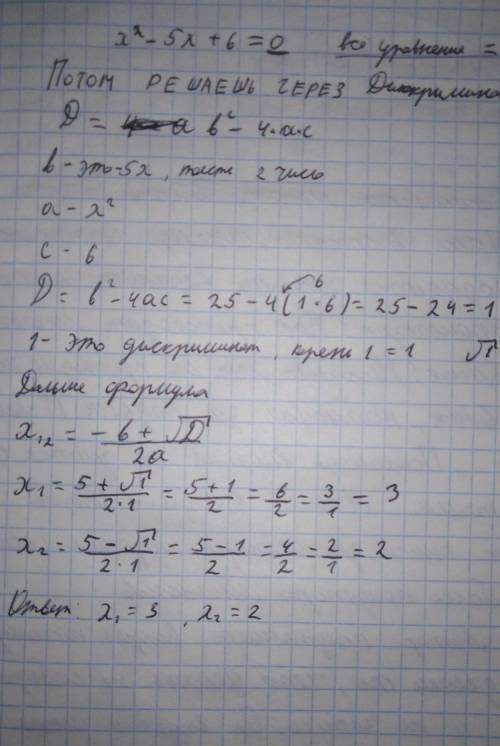 x² - 5x + 6 = 0 все уравнение =
Потом РЕШАЕШЬ ЧЕРЕЗ Дискримина
D = b² - 4·a·c
b - это -5x, тоесть 2 число
a - x²
c - 6
D = b² - 4ac = 25 - 4(1·6) = 25 - 24 = 1
6
1 - это дискриминант, корень 1 = 1 √1
Дальше формула
x₁,₂ = -b + √D / 2a
x₁ = 5 + √1 / 2·1 = 5+1 / 2 = 6/2 = 3/1 = 3
x₂ = 5 - √1 / 2·1 = 5-1 / 2 = 4/2 = 2/1 = 2
Ответ: x₁ = 3, x₂ = 2